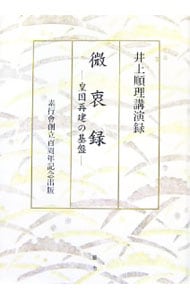 井上順理講演録
微衷録
―皇国再建の基盤―
素行會創立百周年記念出版